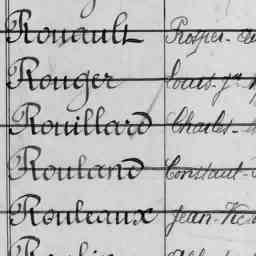 Rouault Prosper-
Rouger Louis-Jn
Rouillard Charles-
Rouland Constant-
Rouleaux Jean-